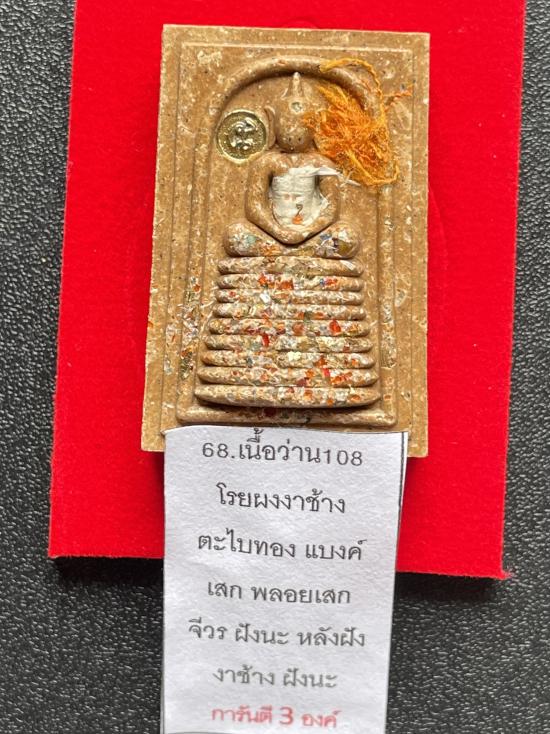 68.เนื้อว่าน108
โรยผงงาช้าง
ตะไบทอง แบงค์
เสก พลอยเสก
จีวร ฝังนะ หลังฝัง
งาช้าง ฝังนะ
การันตี 3 องค์